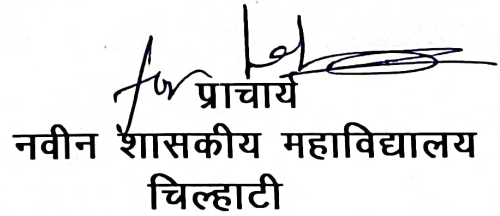 for
प्राचार्य
नवीन शासकीय महाविद्यालय
चिल्हाटी